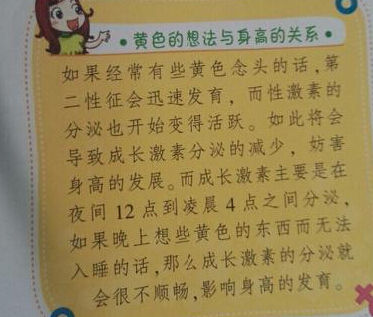 • 黄色的想法与身高的关系 •
如果经常有些黄色念头的话,第
二性征会迅速发育，而性激素的
分泌也开始变得活跃。如此将会
导致成长激素分泌的减少，妨害
身高的发展。而成长激素主要是在
夜间 12 点到凌晨 4 点之间分泌,
如果晚上想些黄色的东西而无法
入睡的话,那么成长激素的分泌就
会很不顺畅,影响身高的发育。